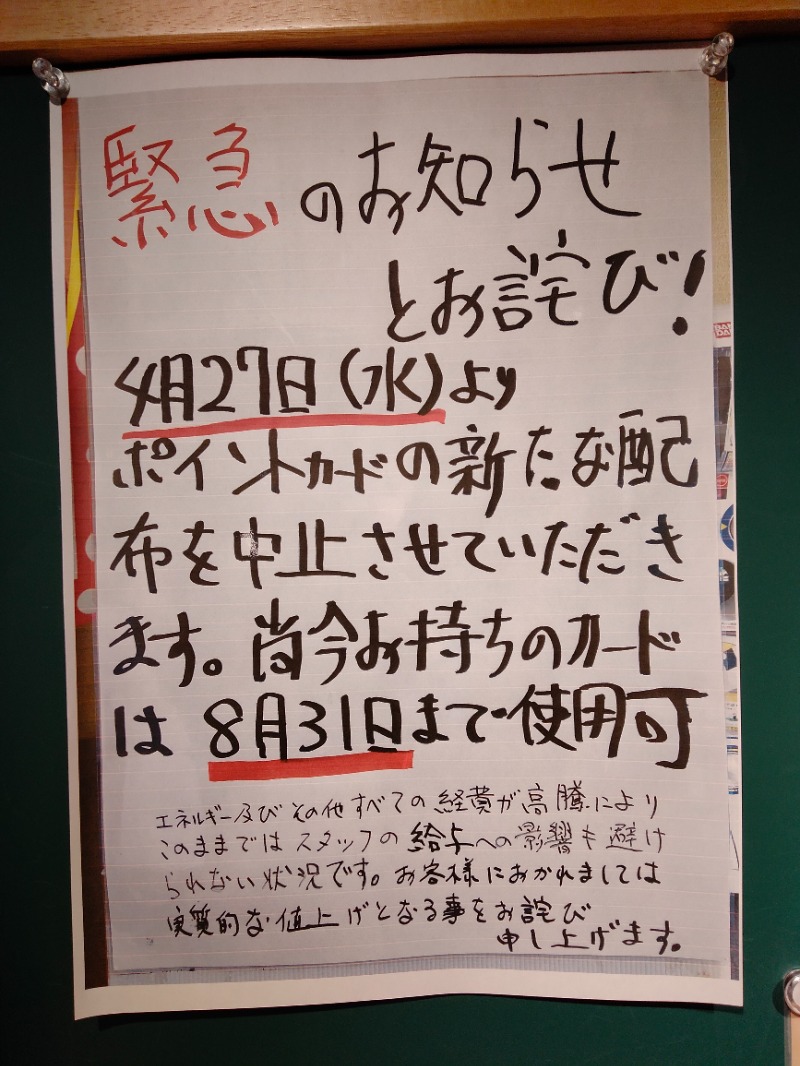 緊急のお知らせ
とお詫び!
4月27日(水)より
ポイントカードの新たな配
布を中止させていただき
ます。尚今お持ちのカード
は8月31日まで使用可
エネルギー及びその他すべての経費が高騰により
このままではスタッフの給与への影響も避け
られない状況です。お客様におかれましては
実質的な値上げとなる事をお詫び
申し上げます。